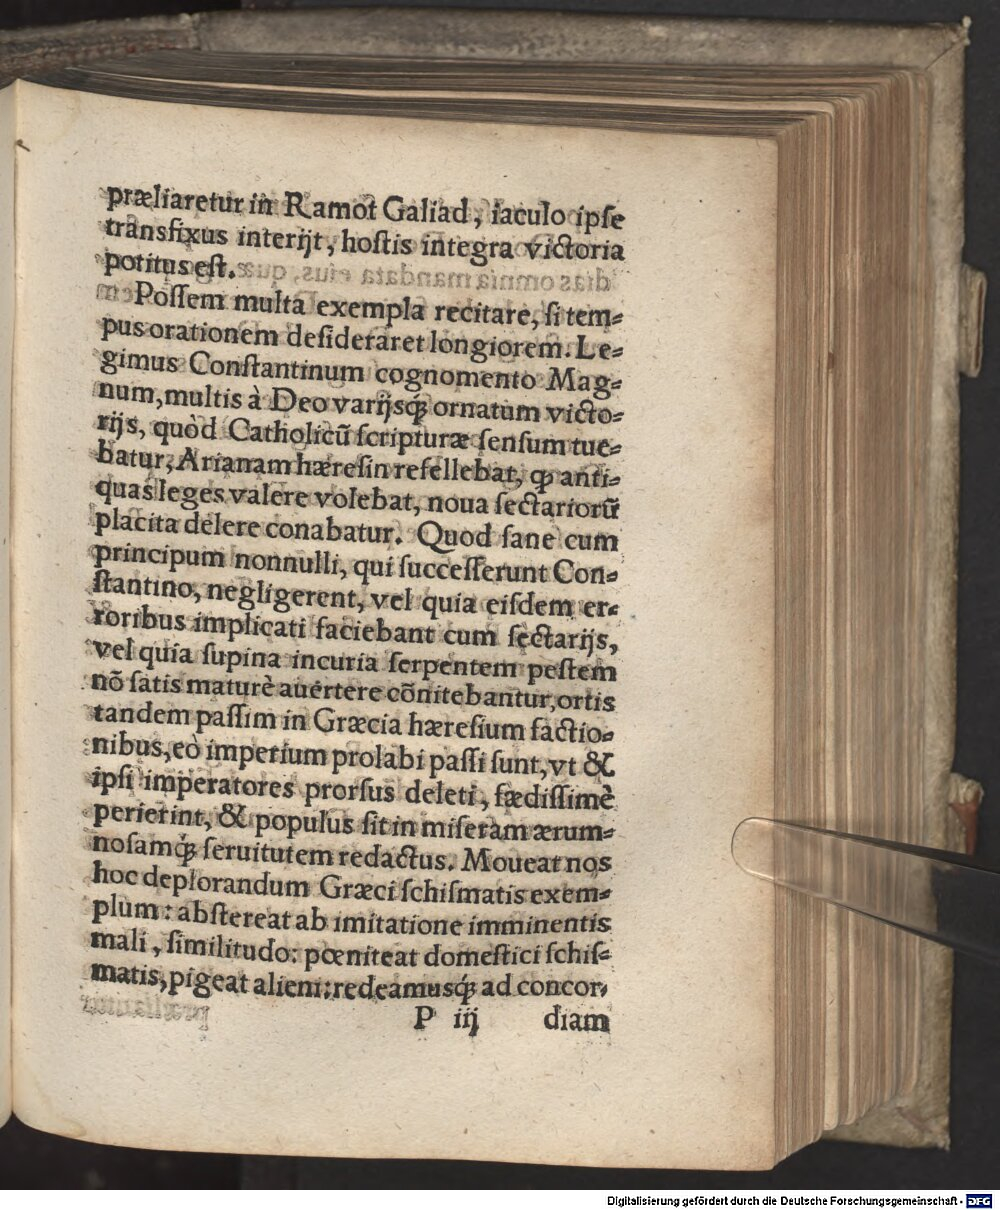 præliaretur in Ramot Galiad, iaculo ipſe
transfixus interijt, hoſtis integra victoria
potitus eſt.
Poſſem multa exempla recitare, ſi tem-
pus orationem deſideraret longiorem. Le-
gimus Conſtantinum cognomento Mag-
num, multis à Deo varijsq́; ornatum victo-
rijs, quòd Catholicũ ſcripturæ ſenſum tue-
batur, Arianam hæreſin refellebat, ꝙ anti-
quas leges valere volebat, noua ſectariorũ
placita delere conabatur. Quod ſane cum
principum nonnulli, qui ſucceſſerunt Con-
ſtantino, negligerent, vel quia eiſdem er-
roribus implicati faciebant cum ſectarijs,
vel quia ſupina incuria ſerpentem peſtem
nõ ſatis maturè auertere cõnitebantur, ortis
tandem paſſim in Græcia hæreſium factio-
nibus, eò imperium prolabi paſſi ſunt, vt &
ipſi imperatores prorſus deleti, fædiſſimè
perierint, & populus ſit in miſeram ærum-
noſamq́; ſeruitutem redactus. Moueat nos
hoc deplorandum Græci ſchiſmatis exem-
plum: abſtereat ab imitatione imminentis
mali, ſimilitudo: pœniteat domeſtici ſchiſ-
matis, pigeat alieni: redeamusq́; ad concor-
P iij diam
Digitalisierung gefördert durch die Deutsche Forschungsgemeinschaft - DFG